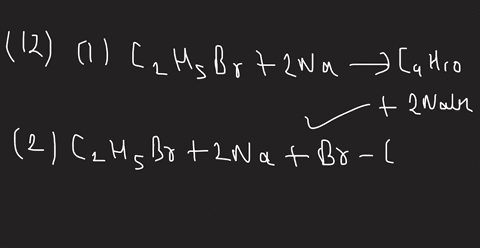 (12) (1) C2H5Br + 2Na → C4H10
+ 2NaBr
(2) C2H5Br + 2Na + Br - C